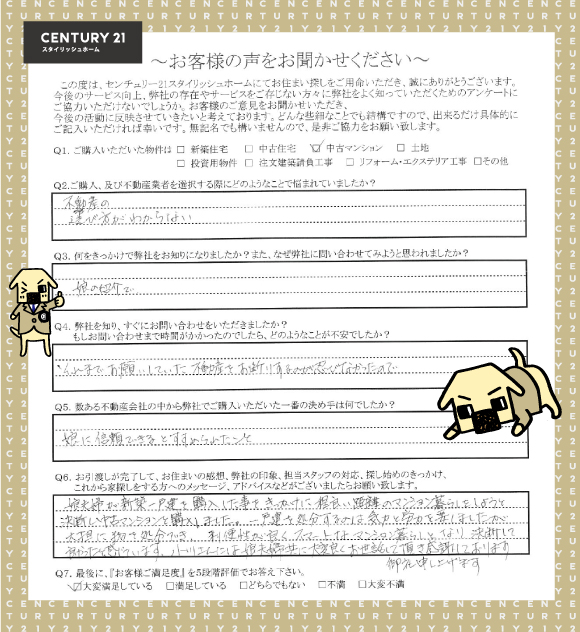 CENTURY 21
スタイリッシュホーム
～お客様の声をお聞かせください～
この度は、センチュリー21スタイリッシュホームにてお住まい探しをご用命いただき、誠にありがとうございます。
今後のサービス向上、弊社の存在やサービスをご存じない方々に弊社をよく知っていただくためのアンケートに
ご協力いただけないでしょうか。お客様のご意見をお聞かせいただき、
今後の活動に反映させていきたいと考えております。どんな些細なことでも結構ですので、出来るだけ具体的に
ご記入いただければ幸いです。無記名でも構いませんので、是非ご協力をお願い致します。
Q1. ご購入いただいた物件は □ 新築住宅 □ 中古住宅 ☑ 中古マンション □ 土地
□ 投資用物件 □ 注文建築請負工事 □ リフォーム・エクステリア工事 □その他
Q2.ご購入、及び不動産業者を選択する際にどのようなことで悩まれていましたか？
不動産の
選び方がわからない
Q3. 何をきっかけで弊社をお知りになりましたか？また、なぜ弊社に問い合わせてみようと思われましたか？
娘の紹介で
Q4. 弊社を知り、すぐにお問い合わせをいただきましたか？
もしお問い合わせまで時間がかかったのでしたら、どのようなことが不安でしたか？
今まで お願いしていた 不動産を お断りするのが忍びなかったので
Q5. 数ある不動産会社の中から弊社でご購入いただいた一番の決め手は何でしたか？
娘に信頼できるとすすめられたこと
Q6. お引渡しが完了して、お住まいの感想、弊社の印象、担当スタッフの対応、探し始めのきっかけ、
これから家探しをする方へのメッセージ、アドバイスなどがございましたらお願い致します。
娘夫婦が新築一戸建を購入した事をきっかけに程良い距離のマンション暮らしをしようと
決断し中古マンションを購入しました。一戸建を処分するのは気力と労力を要しましたが
大胆に物を処分でき、利便性が良くスマートなマンション暮らしとなり 決断して
良かったと思っています。 には娘夫婦共に大変良くお世話して頂き感謝しております
御礼申し上げます
Q7. 最後に、『お客様ご満足度』を5段階評価でお答え下さい。
☑大変満足している □満足している □どちらでもない □不満 □大変不満